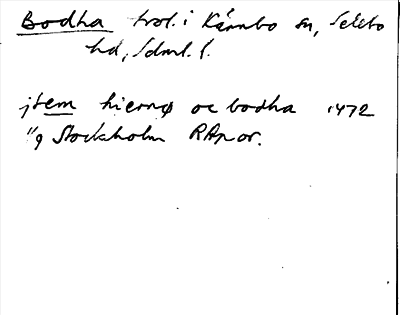 Bodha trol. i Kärnbo sn, Selebo
hd, Sdml. l.
jtem hiernø oc bodha 1472
11/9 Stockholm RApor.